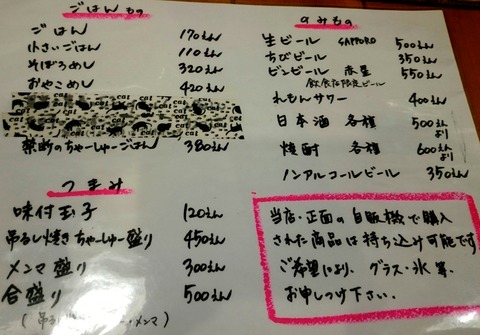 ごはんもの
ごはん 170えん
小さいごはん 110えん
そぼろめし 320えん
おやこめし 420えん
cat cat cat cat
禁断のちゃーしゅーごはん 380えん
つまみ
味付玉子 120えん
吊るし焼きちゃーしゅー盛り 450えん
メンマ盛り 300えん
合盛り 500えん
メンマ)
のみもの
生ビール SAPPORO 500えん
ちびビール 350えん
ビンビール 赤星 550えん
飲食店限定ビール
れもんサワー 400えん
日本酒 各種 500えんより
焼酎 各種 600えんより
ノンアルコールビール 350えん
当店・正面の自販機で購入
された商品は持ち込み可能です
ご希望により、グラス・氷等、
お申しつけ下さい。